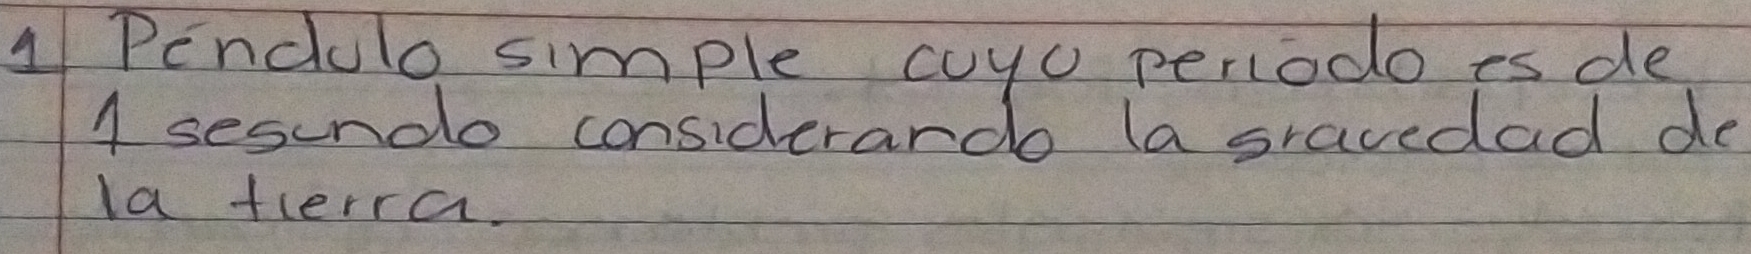 1 Péndulo simple cuyo período es de
1 segundo considerando la gravedad de
la tierra.